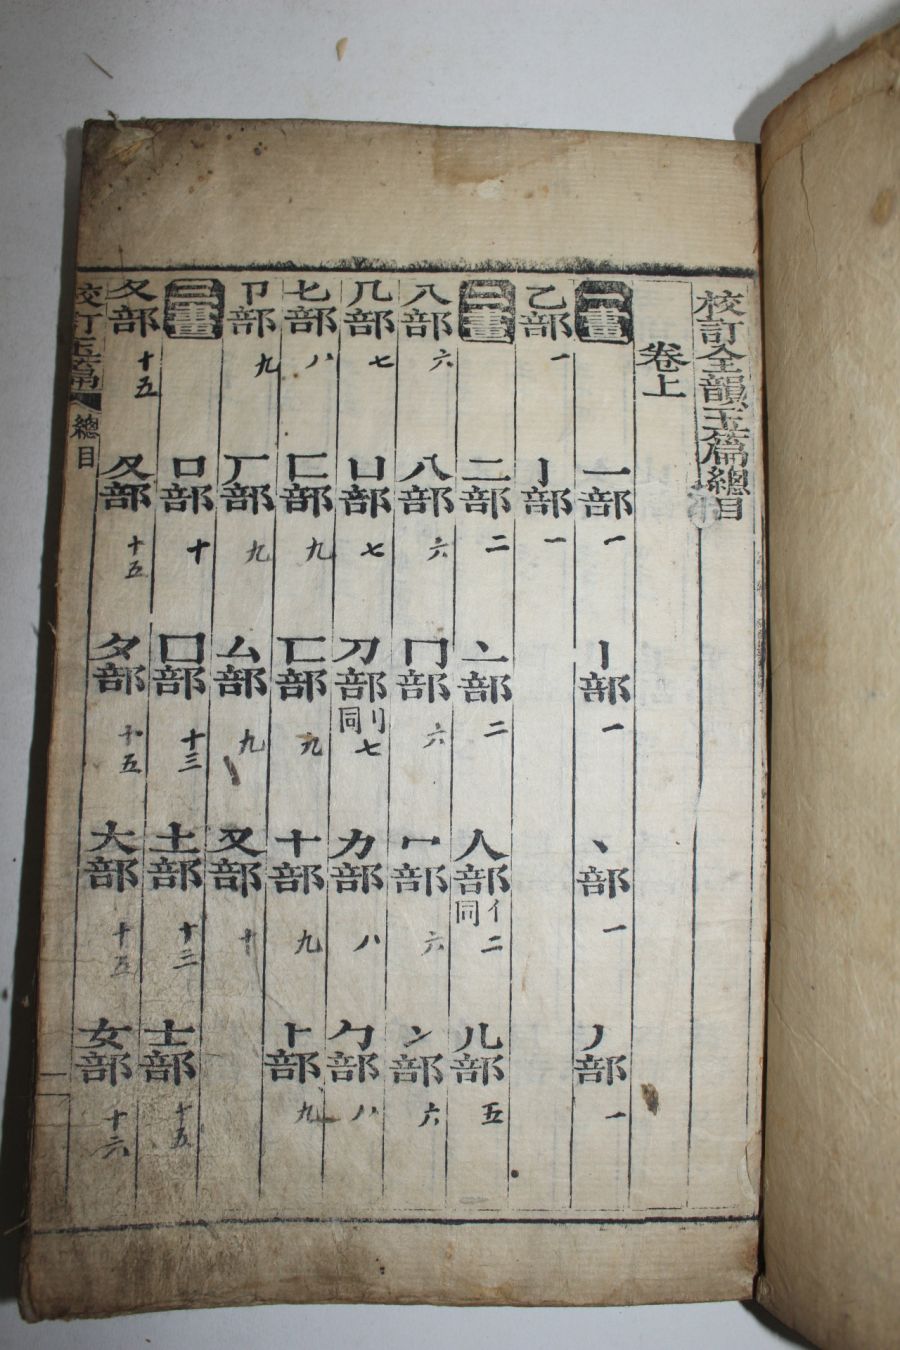 校訂全韻玉篇總目
卷上
一畫 一部 一 丨部 一 丶部 一 丿部 一
乙部 一 亅部 一
二畫 二部 二 亠部 二 人部 亻同 二 儿部 五
入部 六 八部 六 冂部 六 冖部 六 冫部 六
几部 七 凵部 七 刀部 刂同 七 力部 八 勹部 八
匕部 八 匚部 九 匸部 九 十部 九 卜部 九
卩部 九 厂部 九 厶部 九 又部 十
三畫 口部 十 囗部 十三 土部 十三 士部 十五
夂部 十五 夊部 十五 夕部 十五 大部 十五 女部 十六
校訂玉篇 總目